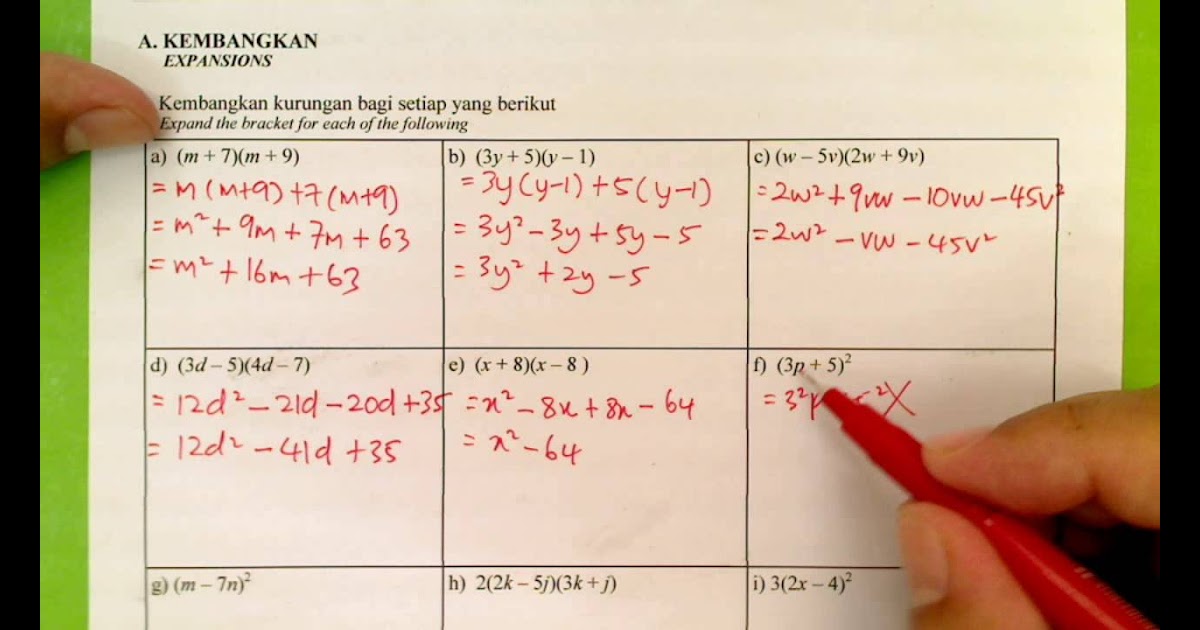 A. KEMBANGKAN
EXPANSIONS
Kembangkan kurungan bagi setiap yang berikut
Expand the bracket for each of the following
a) (m + 7)(m + 9)
= m (m+9) +7 (m+9)
= m² + 9m + 7m + 63
= m² + 16m + 63
b) (3y + 5)(y – 1)
= 3y (y-1) + 5 (y-1)
= 3y² - 3y + 5y - 5
= 3y² + 2y - 5
c) (w – 5v)(2w + 9v)
= 2w² + 9vw - 10vw - 45v²
= 2w² - vw - 45v²
d) (3d – 5)(4d – 7)
= 12d² - 21d - 20d + 35
= 12d² - 41d + 35
e) (x + 8)(x – 8 )
= x² - 8x + 8x - 64
= x² - 64
f) (3p + 5)²
= 3²
g) (m – 7n)²
h) 2(2k – 5j)(3k + j)
i) 3(2x – 4)²